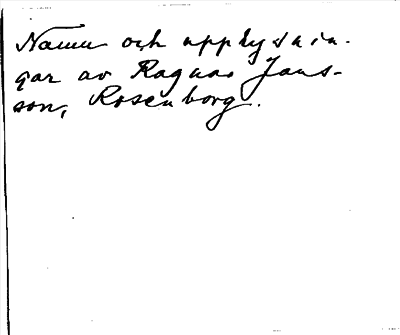 Namn och upplysnin-
gar av Ragnar Jans-
son, Rosenborg.